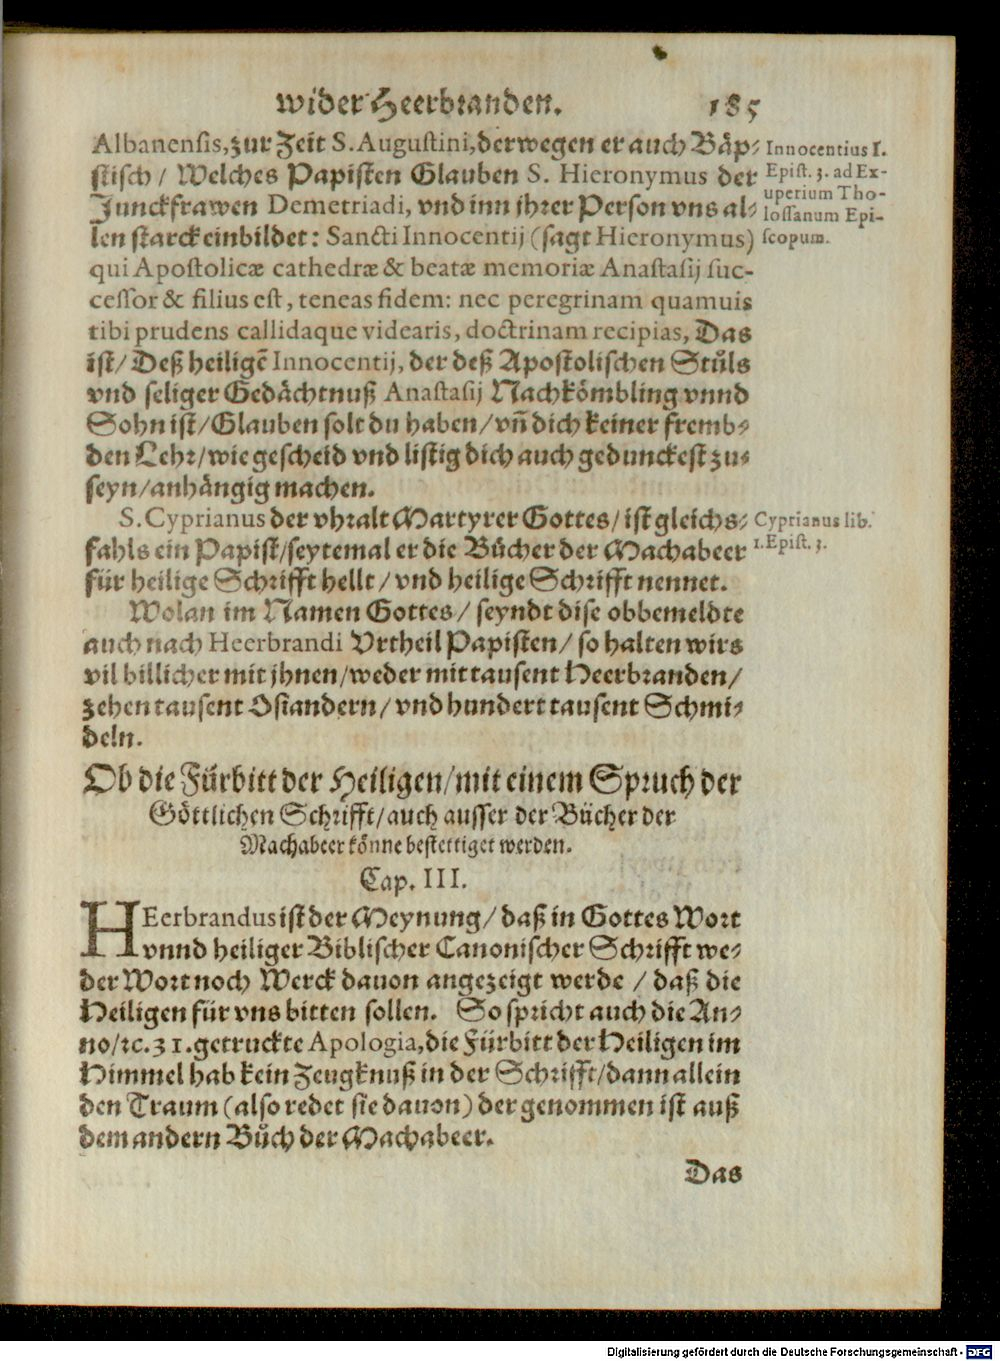 wider Heerbranden. 185
Albanensis, zur Zeit S. Augustini, derwegen er auch Bäp⸗
stisch / Welches Papisten Glauben S. Hieronymus der
Junckfrawen Demetriadi, vnd inn jhrer Person vns al⸗
len starck einbildet: Sancti Innocentij (sagt Hieronymus)
qui Apostolicæ cathedræ & beatæ memoriæ Anastasij suc-
cessor & filius est, teneas fidem: nec peregrinam quamuis
tibi prudens callidaque videaris, doctrinam recipias, Das
ist / Deß heiligẽ Innocentij, der deß Apostolischen Stůls
vnd seliger Gedächtnuß Anastasij Nachkömbling vnnd
Sohn ist / Glauben solt du haben / vñ dich keiner fremb⸗
den Lehr / wie gescheid vnd listig dich auch gedunckest zu⸗
seyn / anhängig machen.
Innocentius I.
Epist. 3. ad Ex-
uperium Tho-
lossanum Epi-
scopum.
S. Cyprianus der vhralt Martyrer Gottes / ist gleichs⸗
fahls ein Papist / seytemal er die Bücher der Machabeer
für heilige Schrifft hellt / vnd heilige Schrifft nennet.
Cyprianus lib.
1. Epist. 3.
Wolan im Namen Gottes / seyndt dise obbemeldte
auch nach Heerbrandi Vrtheil Papisten / so halten wirs
vil billicher mit jhnen / weder mit tausent Heerbranden /
zehen tausent Osiandern / vnd hundert tausent Schmi⸗
deln.
Ob die Fürbitt der Heiligen / mit einem Spruch der
Göttlichen Schrifft / auch ausser der Bücher der
Machabeer könne bestettiget werden.
Cap. III.
HEerbrandus ist der Meynung / daß in Gottes Wort
vnnd heiliger Biblischer Canonischer Schrifft we⸗
der Wort noch Werck dauon angezeigt werde / daß die
Heiligen für vns bitten sollen. So spricht auch die An⸗
no / ꝛc. 31. getruckte Apologia, die Fürbitt der Heiligen im
Himmel hab kein Zeugknuß in der Schrifft / dann allein
den Traum (also redet sie dauon) der genommen ist auß
dem andern Bůch der Machabeer.
Das
Digitalisierung gefördert durch die Deutsche Forschungsgemeinschaft - DFG